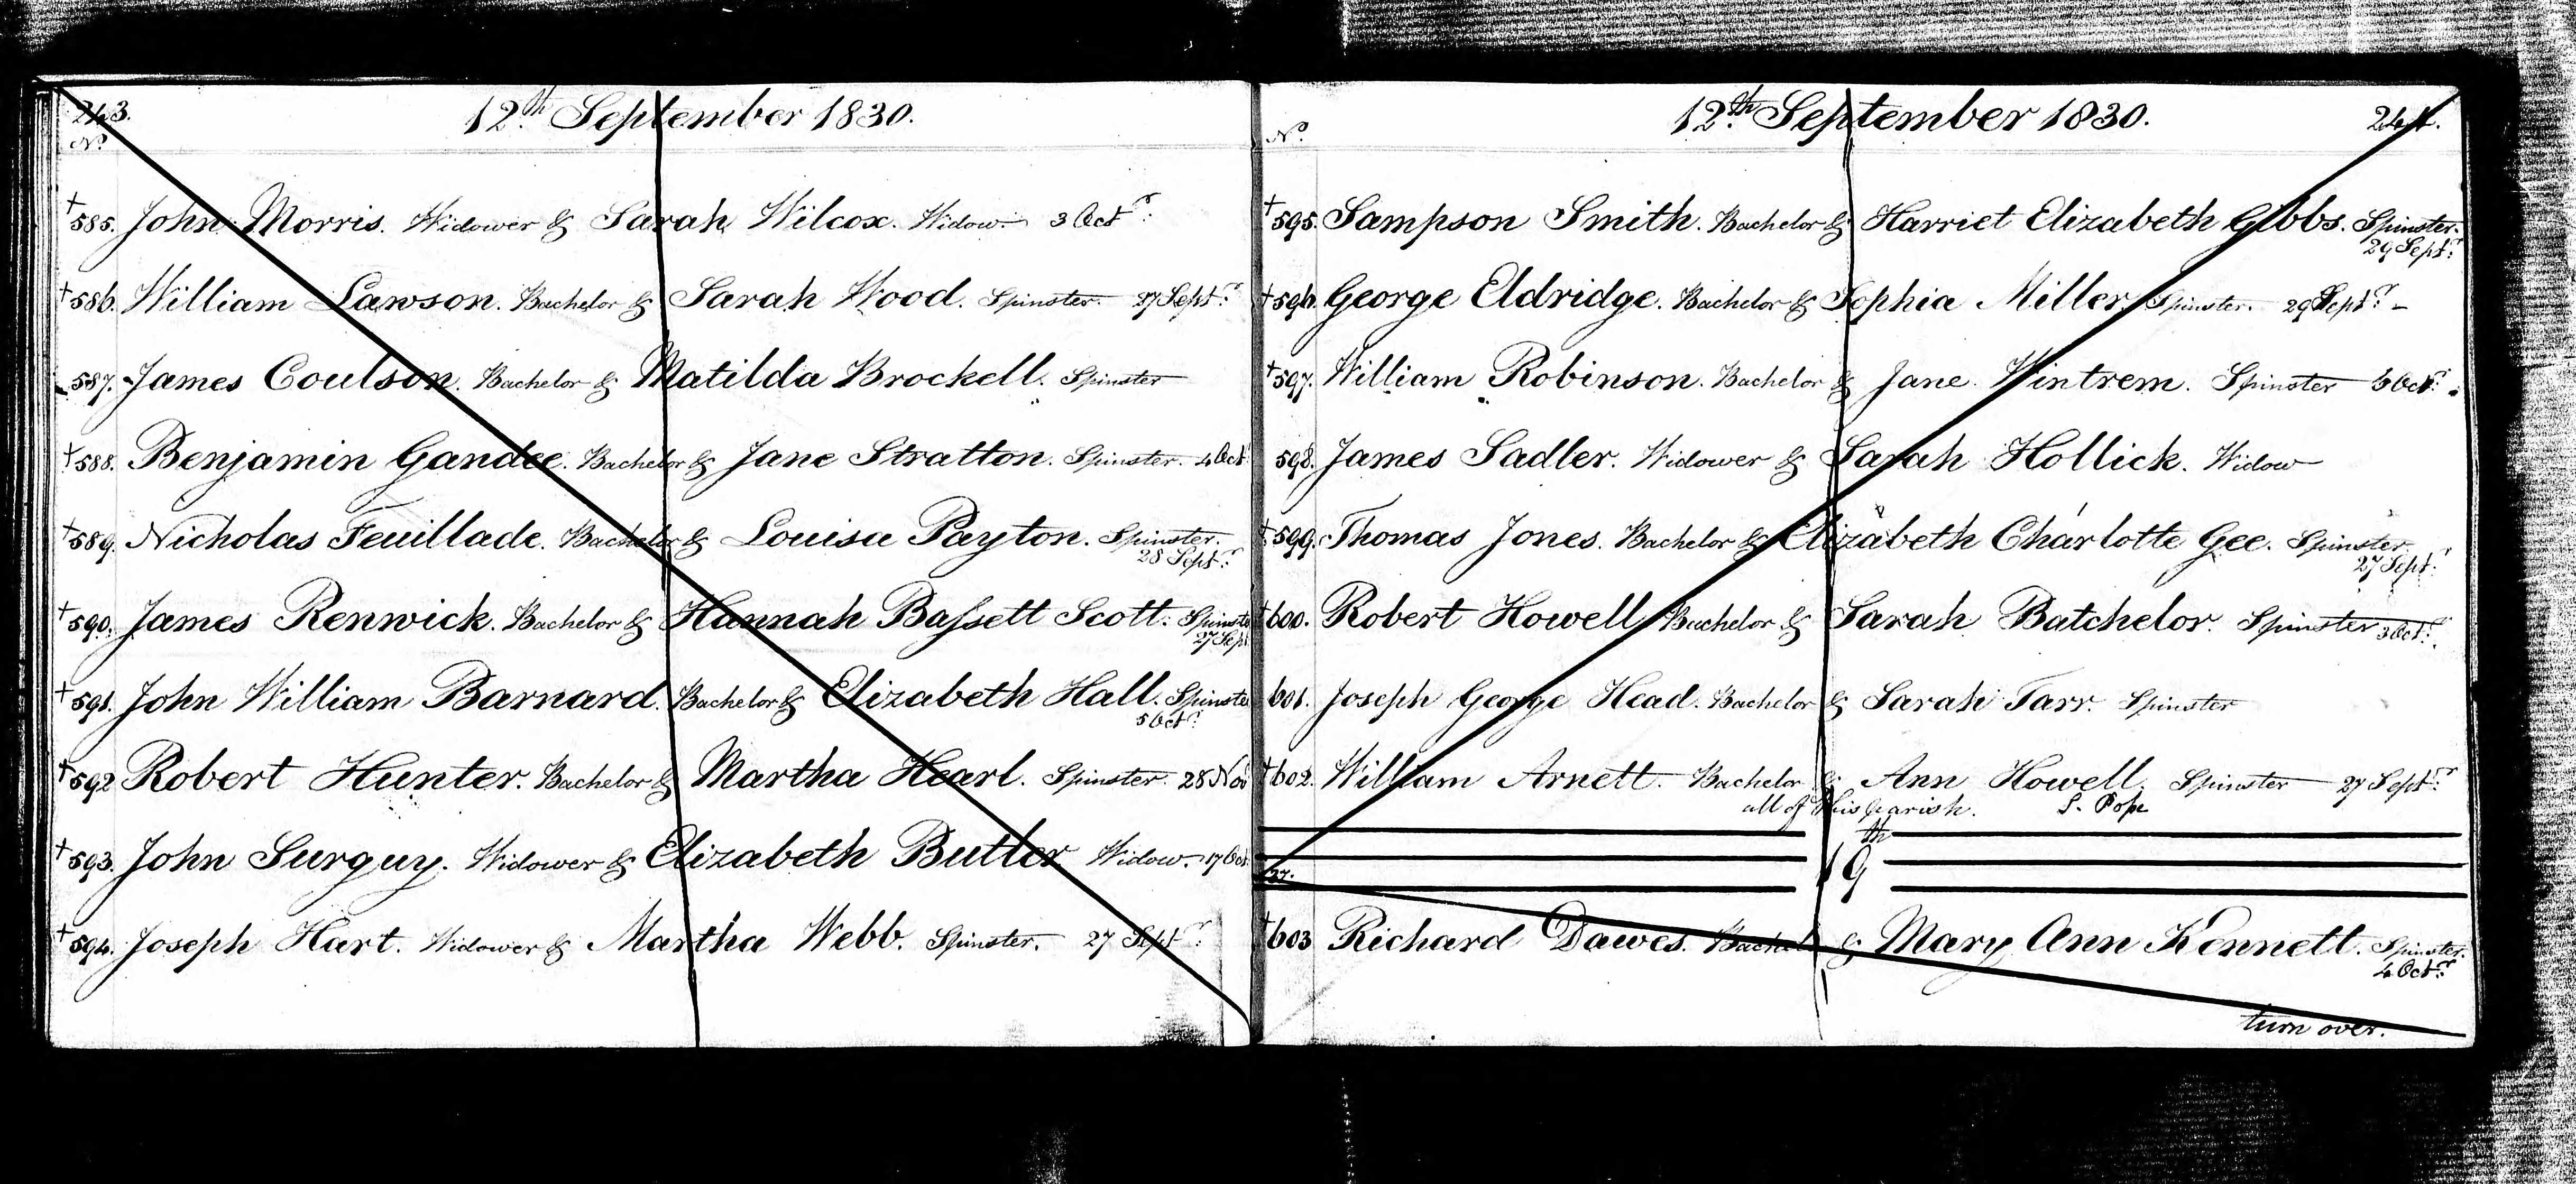 243.
12th September 1830.
No
+585. John Morris. Widower & Sarah Wilcox. Widow. 3 Octr
+586. William Lawson. Bachelor & Sarah Wood. Spinster. 27 Septr
587. James Coulson. Bachelor & Matilda Brockell. Spinster
+588. Benjamin Gandee. Bachelor & Jane Stratton. Spinster. 4 Oct
+589. Nicholas Feuillade. Bachelor & Louisa Payton. Spinster.
28 Septr
+590. James Renwick. Bachelor & Hannah Bassett Scott. Spinste
27 Sept
+591. John William Barnard. Bachelor & Elizabeth Hall. Spinste
5 Octr
+592 Robert Hunter. Bachelor & Martha Hearl. Spinster. 28 Nov
+593. John Surguy. Widower & Elizabeth Butler Widow. 17 Oct
+594. Joseph Hart. Widower & Martha Webb. Spinster. 27 Septr
12th September 1830.
244.
No
+595. Sampson Smith. Bachelor & Harriet Elizabeth Gibbs. Spinster.
29 Septr
+596. George Eldridge. Bachelor & Sophia Miller. Spinster. 29 Septr
+597. William Robinson. Bachelor & Jane Wintrem. Spinster Octr
598. James Sadler. Widower & Sarah Hollick. Widow
+599. Thomas Jones. Bachelor & Elizabeth Charlotte Gee. Spinster
27 Septr
+600. Robert Howell Bachelor & Sarah Batchelor. Spinster 3 Octr
601. Joseph George Head. Bachelor & Sarah Tarr. Spinster
+602. William Arnett. Bachelor & Ann Howell. Spinster 27 Septr
all of this parish. S. Pope
19th
+603 Richard Dawes. Bachel & Mary Ann Kennett. Spinster.
4 Octr
turn over.